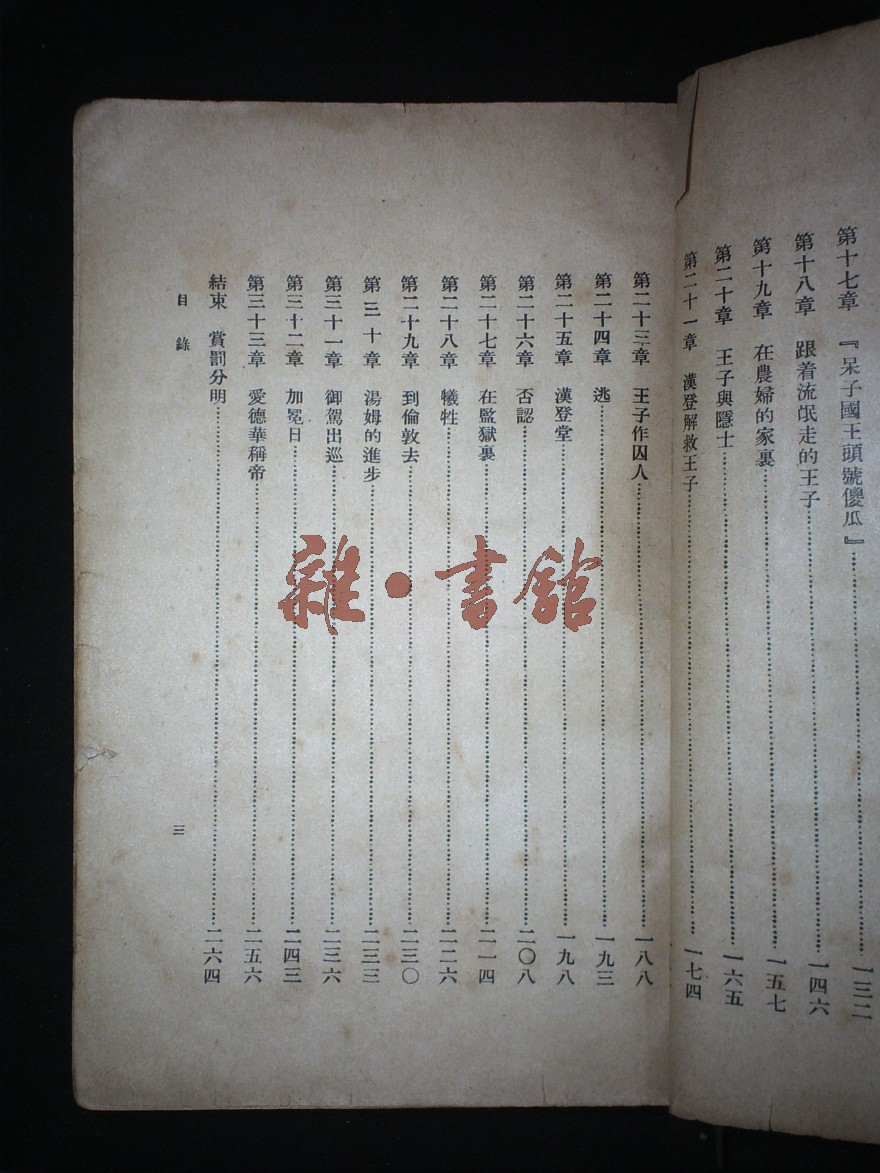 第十七章 『呆子國王頭號傻瓜』……一三二
第十八章 跟着流氓走的王子……一四六
第十九章 在農婦的家裏……一五七
第二十章 王子與隱士……一六五
第二十一章 漢登解救王子……一七四
第二十三章 王子作囚人……一八八
第二十四章 逃……一九三
第二十五章 漢登堂……一九八
第二十六章 否認……二〇八
第二十七章 在監獄裏……二一四
第二十八章 犧牲……二二六
第二十九章 到倫敦去……二三〇
第三十章 湯姆的進步……二三三
第三十一章 御駕出巡……二三六
第三十二章 加冕日……二四三
第三十三章 愛德華稱帝……二五六
結束 賞罰分明……二六四
目錄 三
雜·書館